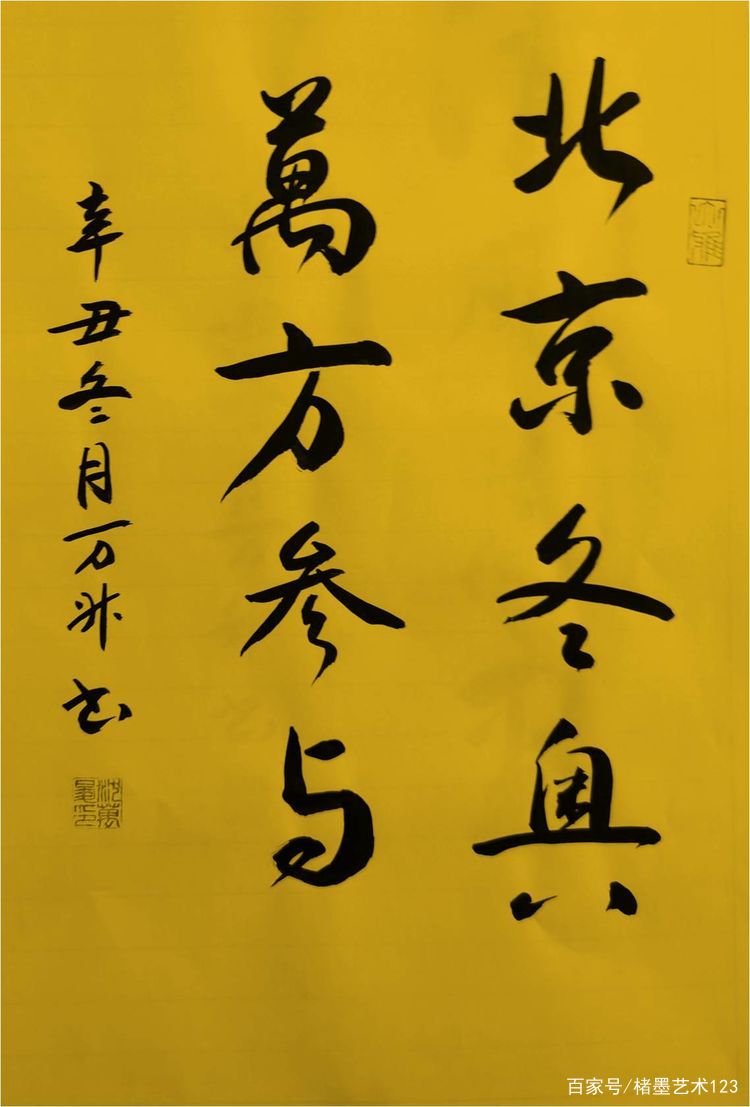 北京冬奥
萬方参与
辛丑冬月万书
大雅
百家号/楮墨艺术123